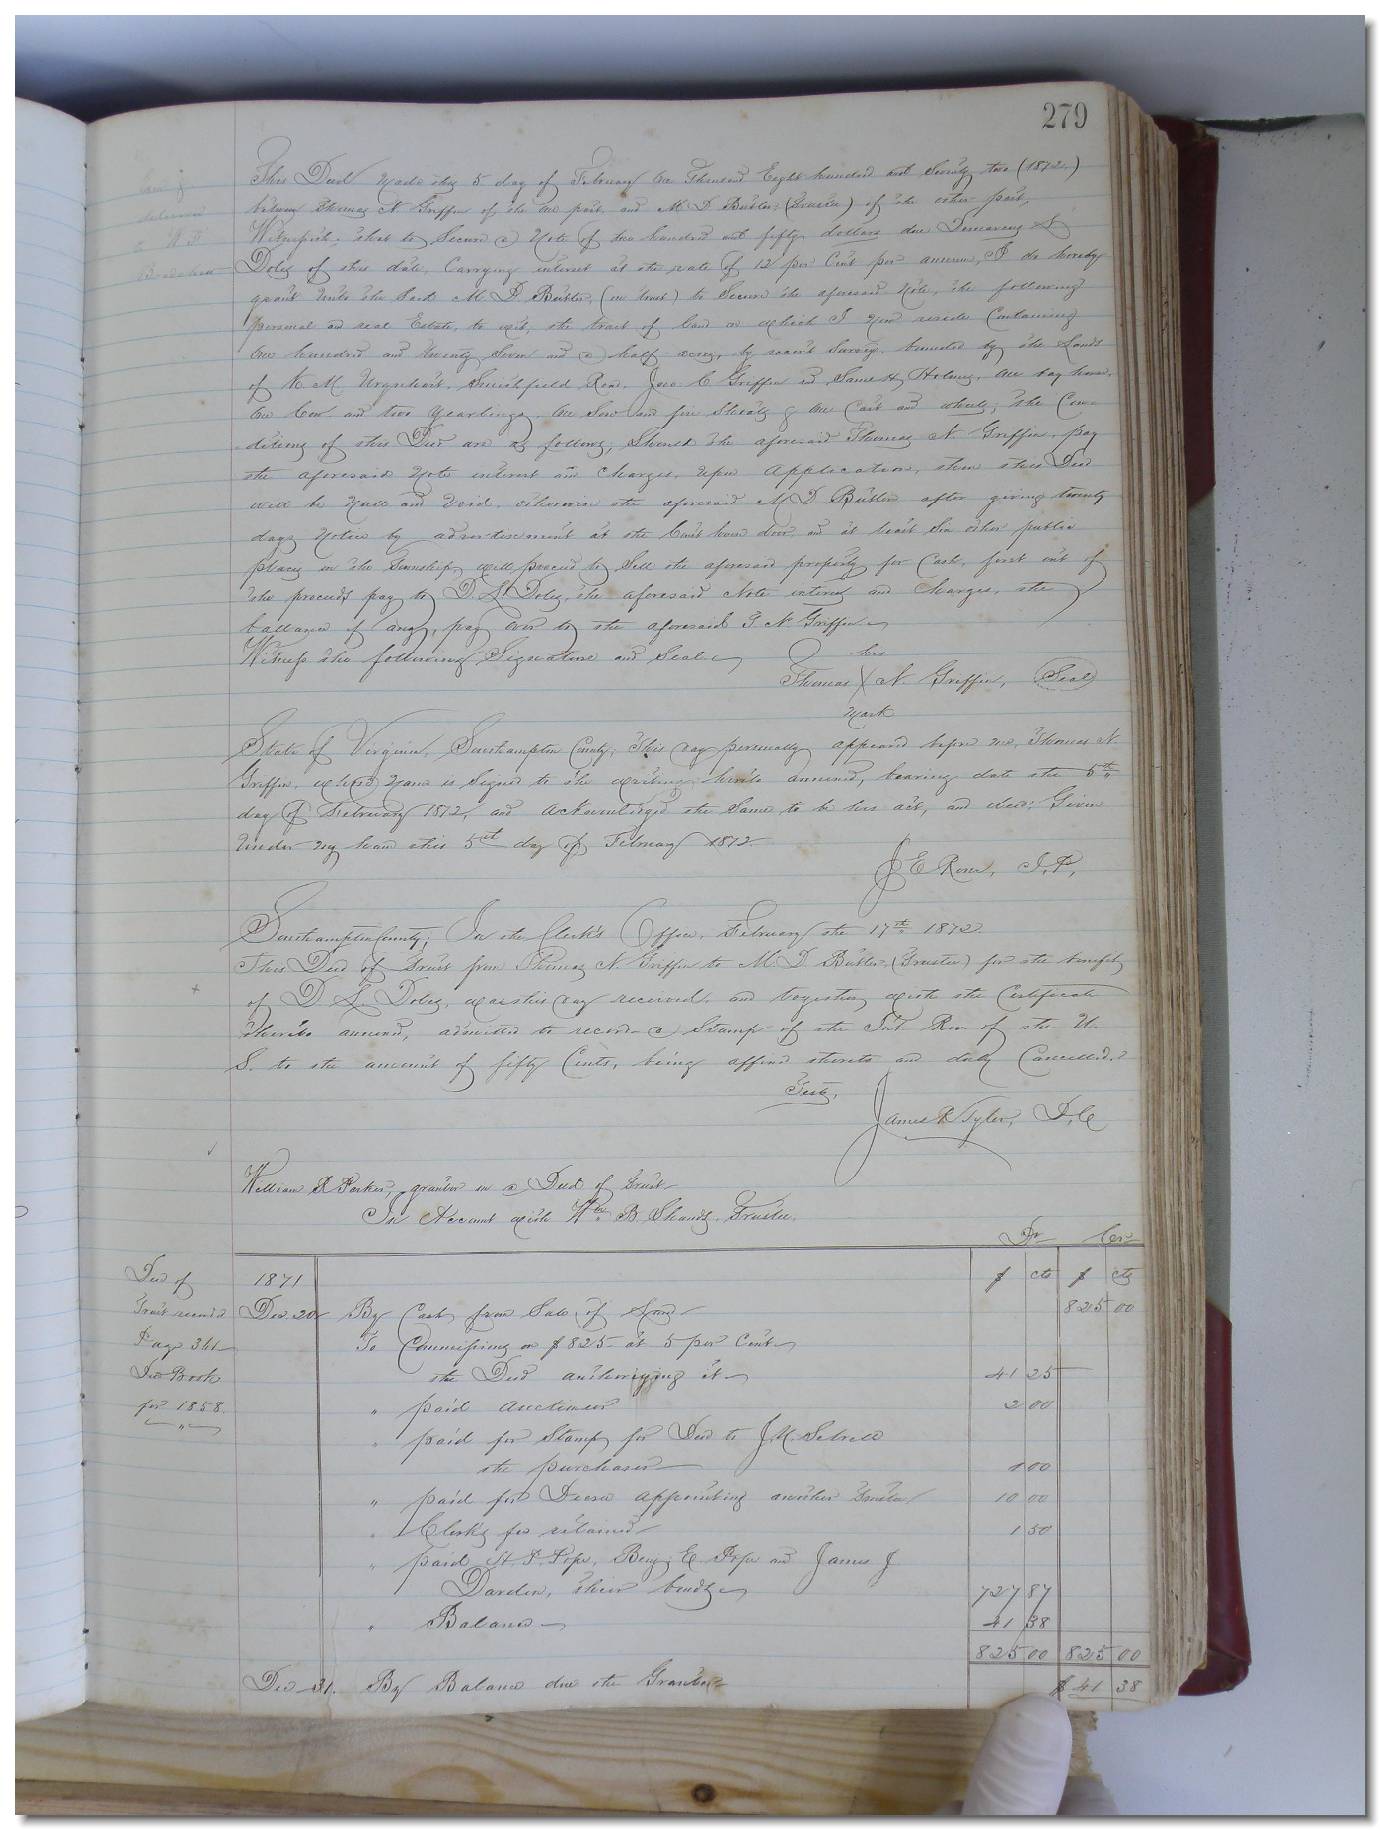 279
This Deed made this 5 day of February One Thousand Eight hundred and Seventy two (1872.)
between Thomas N. Griffin of the one part and M. D. Butler (Trustee) of the other part,
Witnesseth: that to Secure a Note of two hundred and fifty dollars due
Doley of this date, Carrying interest at the rate of 12 per Cent per annum, I do hereby
grant unto the Said M D Butler, (in trust) to Secure the aforesaid Note, the following
personal and real Estate, to wit, the tract of land on which I now reside Containing
One hundred and twenty Seven and a half acres, by recent Survey. bounded by the Lands
of M. Urquhart. Smithfield Road. Jno. C Griffin and James H Holmes. One bay horse.
One Cow and two Yearlings. One Sow and five Shoats & One Cart and wheels; the Con-
ditions of this Deed are as follows; Should the aforesaid Thomas N. Griffin, pay
the aforesaid Note interest and Charges, upon application, then this Deed
will be Null and Void. otherwise the aforesaid M D Butler after giving twenty
days Notice by advertisement at the Court house door, and at least Six other public
places in the Township, will proceed to Sell the aforesaid property for Cash, first out of
the proceeds pay to D. L. Doley, the aforesaid Note interest and Charges, the
ballance if any, pay over to the aforesaid T N Griffin
Witness the following Signature and Seal.
his
Thomas X N. Griffin, (Seal)
mark
State of Virginia, Southampton County; This day personally appeared before me, Thomas N.
Griffin, whose Name is Signed to the writing hereto annexed, bearing date the 5th
day of February 1872, and acknowledged the Same to be his act, and deed: Given
Under my hand this 5th day of February 1872.
J E Rose, J.P,
Southampton County; In the Clerk's Office, February the 17th 1872.
This Deed of Trust from Thomas N. Griffin to M. D. Butler, (Trustee) for the benefit
of D L. Doley, was this day received, and together with the Certificate
thereto annexed, admitted to record a Stamp of the Int Rev of the U.
S. to the amount of fifty Cents, being affixed thereto and duly Cancelled.
Teste,
James R Tyler, D,C
William R Parker, grantor in a Deed of Trust
In Account with Wm B. Shands Trustee.
Dr Cr
Deed of 1871 $ cts $ cts
Trust record Dec 20 By Cash from Sale of Land 825 00
Page 361 To Commissions on $825 at 5 per Cent
Deed Book the Deed authorizing it 41 25
for 1858. " paid auctioneer 2 00
" paid for Stamps for Deed to J. M. Sebrell
the purchaser 1 00
" paid for Decree appointing another Trustee 10 00
" Clerk's fee retained 1 50
" paid H. P. Pope, Benj. E. Pope and James J.
Darden, their bonds 727 87
" Balance 41 38
825 00 825 00
Dec 31. By Balance due the Grantor $ 41 38